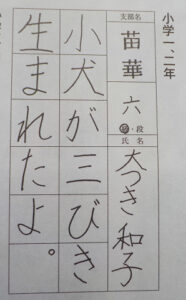 小学一、二年
支部名
苗華
六
級・段
氏名
大つき和子
小犬が三びき
生まれたよ。